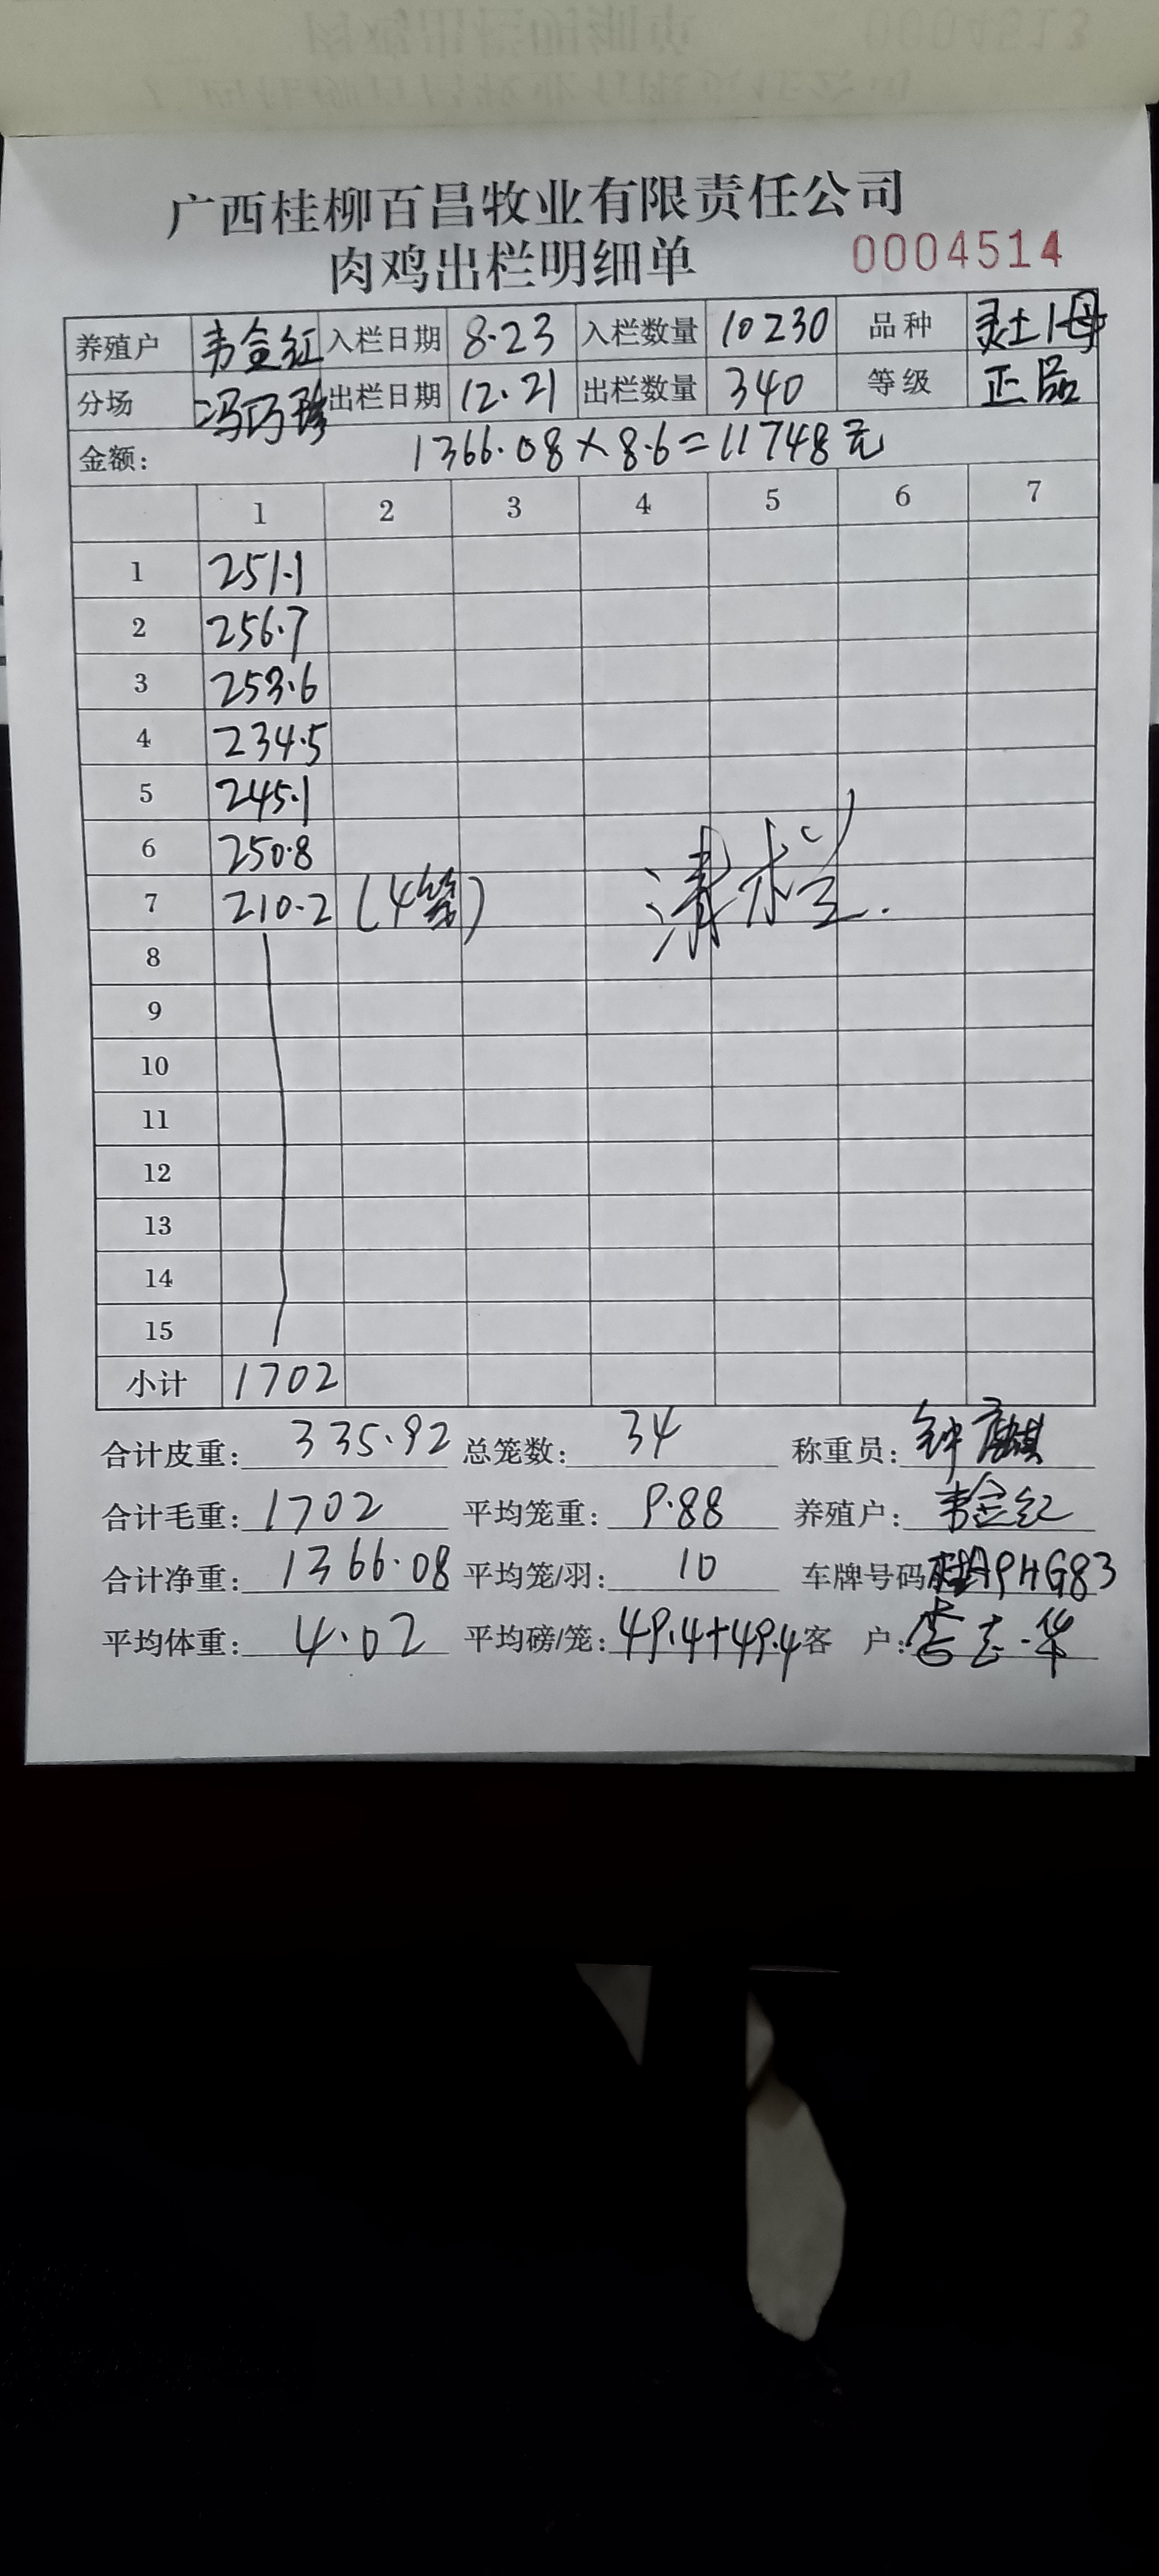 广西桂柳百昌牧业有限责任公司
肉鸡出栏明细单 0004514
养殖户 韦金红 入栏日期 8.23 入栏数量 10230 品种 灵土1母
分场 冯巧珍 出栏日期 12.21 出栏数量 340 等级 正品
金额: 1366.08×8.6=11748元
1 2 3 4 5 6 7
1 251.1
2 256.7
3 253.6
4 234.5
5 245.1
6 250.8
7 210.2 (4笼) 清栏.
8
9
10
11
12
13
14
15
小计 1702
合计皮重: 335.92 总笼数: 34 称重员: 钟麒
合计毛重: 1702 平均笼重: 9.88 养殖户: 韦金红
合计净重: 1366.08 平均笼/羽: 10 车牌号码 桂APHG83
平均体重: 4.02 平均磅/笼: 49.4+49.4 客 户: 李志华